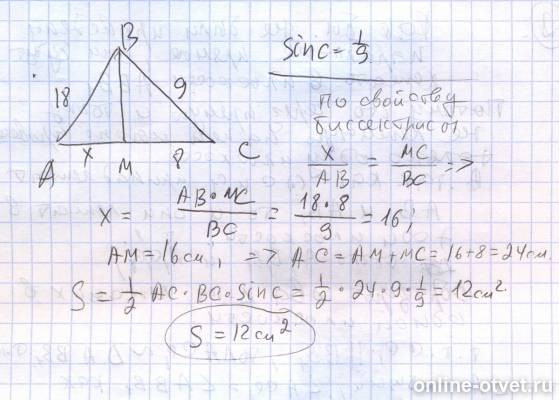 B
sin c = 1/9
18
9
по свойству
биссектрисы
A
x
M
8
C
x/AB = MC/BC =>
x = AB·MC/BC = 18·8/9 = 16;
AM = 16 см; => AC = AM + MC = 16 + 8 = 24 см.
S = 1/2 AC · BC · sin C = 1/2 · 24 · 9 · 1/9 = 12 см².
S = 12 см².
online-otvet.ru